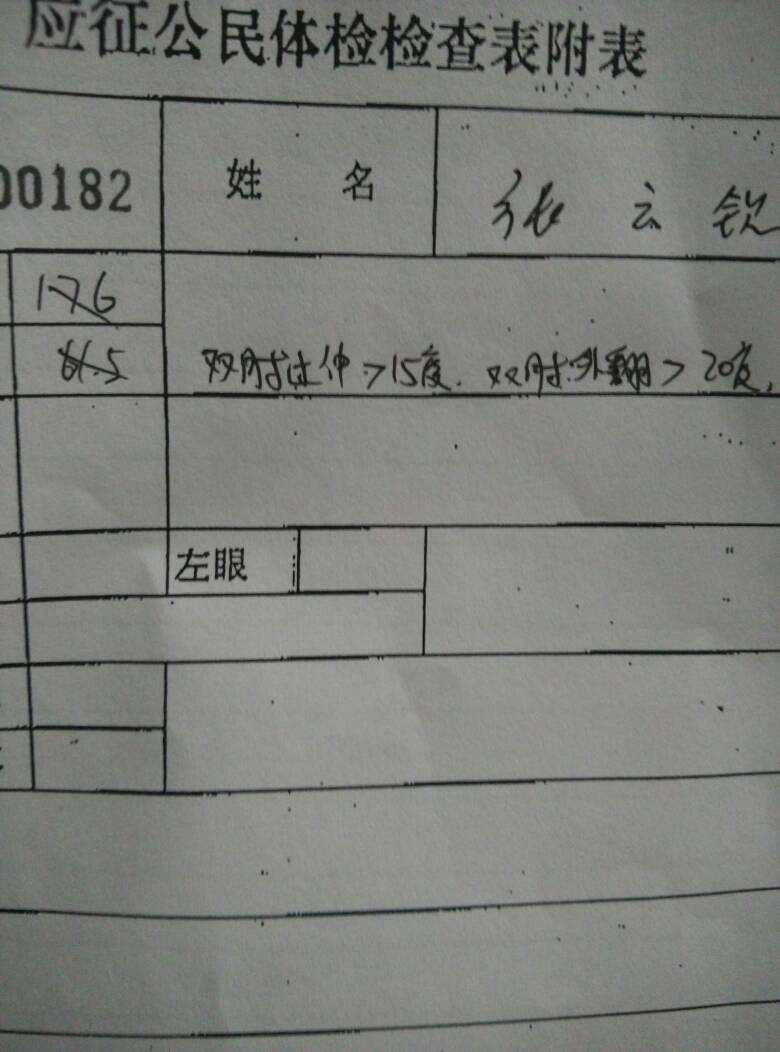 应征公民体检检查表附表
00182 姓 名 张云锐
176
61.5 双肘过伸>15度. 双肘外翻>20度.
左眼